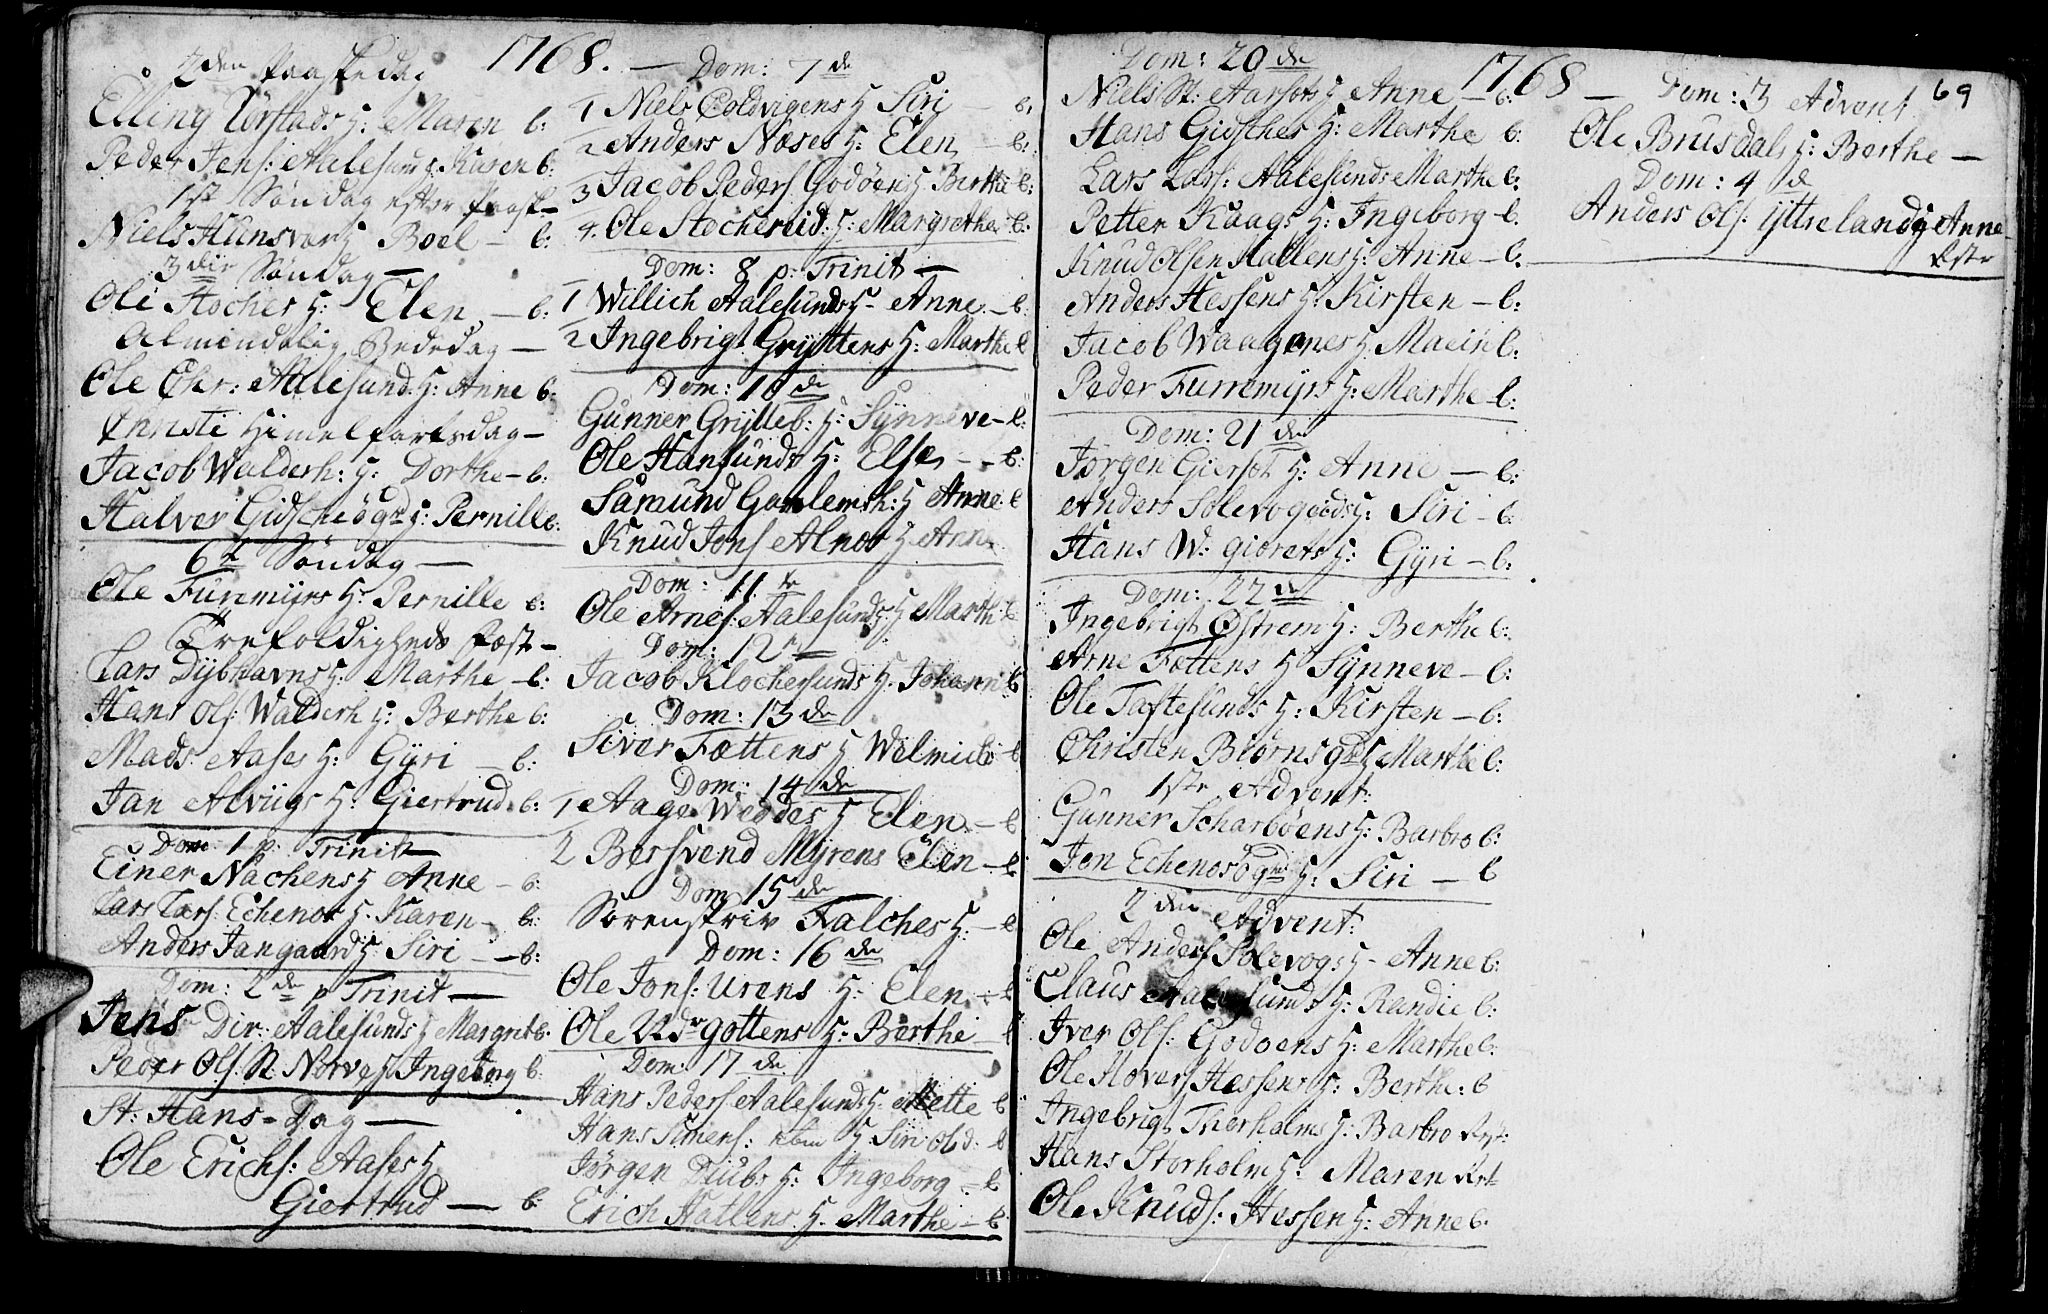 1768. —
2den Paaskedag
Elling Tørstads H: Maren b:
Peder Jens: Aalesund H. Karen b:
1ste Søndag efter Paask—
Niels Hunsvar H Boel — b:
3die Søndag —
Ole Stoches H: Elen — b:
Almindelig Bededag —
Ole Chr: Aalesund H: Anne b:
Christi Himelfartsdag —
Jacob Walderh: H: Dorthe — b:
Halver Gidscheøgd H: Pernille b:
6te Søndag —
Ole Furmyrs H: Pernille b:
Trefoldigheds Fæst —
Lars Dybhavns H: Marthe — b:
Hans Ols: Walderh H: Berthe b:
Mads Aases H: Gÿri — b:
Jan Alviigs H: Giertrud b:
Dom 1 p: Trinit
Einer Nachens H Anne — b:
Lars Lars: Echenos H. Karen — b:
Anders Jangaard H Siri — b:
Dom: 2de p Trinit —
Jens Dir: Aalesunds H Margret b.
Peder Ols: St. Nørves H Ingeborg b:
St: Hans = Dag —
Ole Erichs: Aases H
Giertrud — b
Dom: 7de
1 Niels Coldvigens H Siri — b.
2 Anders Næses H: Elen — b:
3 Jacob Peders Godøen H Berthe b:
4. Ole Stochereid: H: Margrethe b:
Dom: 8 p: Trinit —
1 Willich Aalesunds H. Anne — b.
2 Ingebrigt Gryttens H: Marthe b
Dom: 10de
Gunner Grytteb: H: Synneve — b:
Ole Hansunds H: Else — b:
Samund Gamlemsh: H Anne b
Knud Jons Alnes H Ann
Dom: 11te
Ole Arnes: Aalesunds H Marthe b
Dom: 12
Jacob Klochersunds H. Johann b
Dom: 13de
Siver Fættens H Welmiche b
Dom: 14de
1 Aage Weddes H Elen — b
2 Bersvend Myrens Elen — b
Dom 15de
Sørenskriv Falches H: — b
Dom: 16de
Ole Jons: Urens H: Elen — b
Ole Ndr gottens H: Berthe — b
Dom: 17de
Hans Peders Aalesunds H: Mette b
Hans Simens: H: Siri Olsd: b
Jørgen Diubs H: Ingeborg — b
Erich Hatlens H. Marthe — b
1768 —
69
Dom: 20de
Niels St: Aarsets H Anne — b:
Hans Gidsches H: Marthe b:
Lars Lars: Aalesunds Marthe b:
Petter Kaags H: Ingeborg — b.
Knud Olsen Hatlens H: Anne — b:
Anders Hessens H: Kirsten — b:
Jacob Waagenes H Maein b:
Peder Furremyrs H: Marthe — b:
Dom: 21de
Jørgen Giersæt H: Anne — b:
Anders Solevogeids H: Siri — b:
Hans W: giørets H: Gÿri — b:
Dom: 22de
Ingebrigt Østrem H: Berthe b:
Arne Fættens H Synneve — b:
Ole Taftesunds H: Kirsten — b:
Christen Biørnsgd H Marthe b:
1ste Advent:
Gunner Scharbøens H: Barbro b:
Jon Echenosøgnes H: Siri — b
2den Advent:
Ole Anders Solevogs H. Anne b:
Claus Aalesunds H: Randie b:
Iver Ols: Godøens H: Marthe b:
Ole Hovers Hessens H: Berthe: b
Ingebrigt Thorholms H: Barbro
Hans Storholm H: Maren
Ole Knuds: Hessen H: Anne b:
Dom: 3 Advent
Ole Brusdals H: Berthe —
Dom: 4de
Anders Ols: Yttreland H Anne